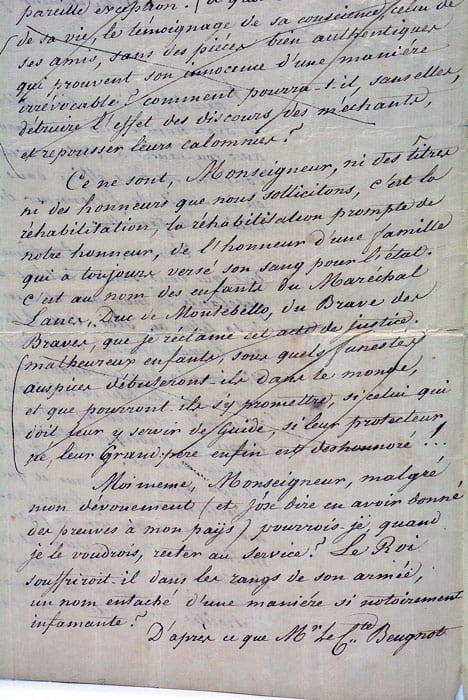 pareille exception. (de quoi
de sa vie, le témoignage de sa conscience, celui de
ses amis, sans des piéces bien authentiques
qui prouvent son innocence d'une manière
irrévocable? comment pourra-t-il, sans elles,
détruire l'effet des discours des méchants,
et repousser leurs calomnies?
Ce ne sont, Monseigneur, ni des titres
ni des honneurs que nous sollicitons, c'est la
réhabilitation, la réhabilitation prompte de
notre honneur, de l'honneur d'une famille
qui a toujours versé son sang pour l'état.
C'est au nom des enfants du Maréchal
Lanes, Duc de Montebello, du Brave des
Braves, que je réclame cet acte de justice.
(malheureux enfants, sous quels funestes
auspices débuseront-ils dans le monde,
et que pourront-ils s'y promettre, si celui qui
doit leur y servir de Guide, si leur protecteur
né, leur Grand-père enfin est deshonnoré!!!
Moi meme, Monseigneur, malgré
mon dévouement (et j'ose dire en avoir donné
des preuves à mon pays) pourrois-je, quand
je le voudrois, rester au service? Le Roi
souffriroit-il dans les rangs de son armée,
un nom entaché d'une manière si notoirement
infamante?
D'apres ce que Mr. Le Cte. Beugnot